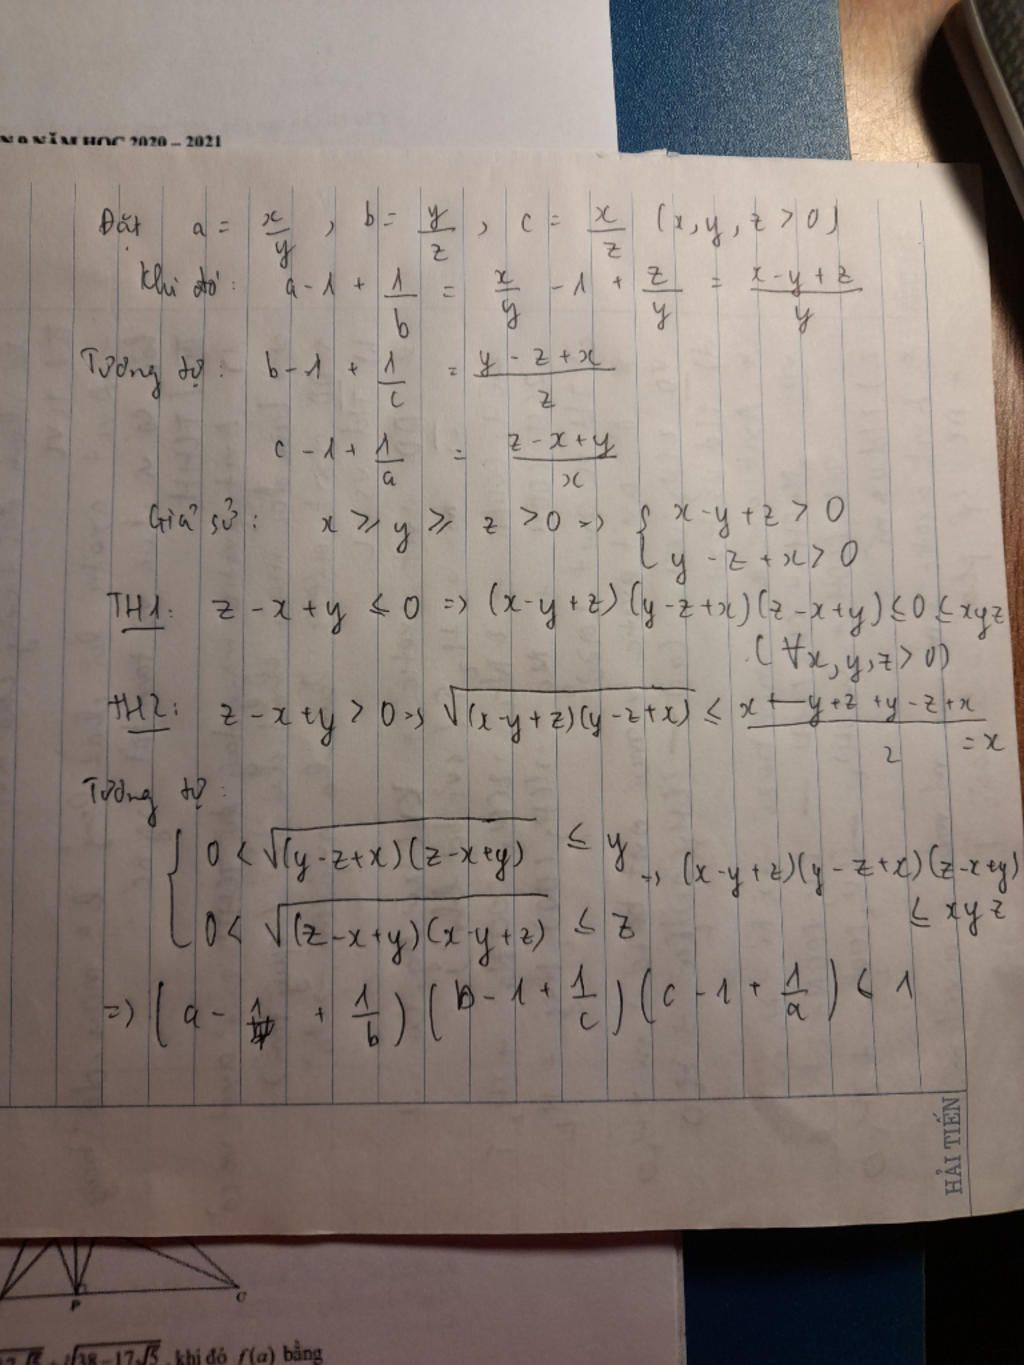 N 9 NĂM HỌC 2020 – 2021
Đặt a = x/y , b = y/z , c = x/z (x, y, z > 0)
Khi đó: a - 1 + 1/b = x/y - 1 + z/y = (x - y + z)/y
Tương tự: b - 1 + 1/c = (y - z + x)/z
c - 1 + 1/a = (z - x + y)/x
Giả sử: x ≥ y ≥ z > 0 => { x - y + z > 0
y - z + x > 0
TH1: z - x + y ≤ 0 => (x - y + z)(y - z + x)(z - x + y) ≤ 0 ≤ xyz
(∀x, y, z > 0)
TH2: z - x + y > 0 => √((x - y + z)(y - z + x)) ≤ (x - y + z + y - z + x)/2 = x
Tương tự:
{ 0 < √((y - z + x)(z - x + y)) ≤ y
=> (x - y + z)(y - z + x)(z - x + y)
≤ xyz
0 < √((z - x + y)(x - y + z)) ≤ z
=> (a - 1 + 1/b)(b - 1 + 1/c)(c - 1 + 1/a) < 1
HẢI TIẾN
P C
38 – 17√5 , khi đó f(a) bằng